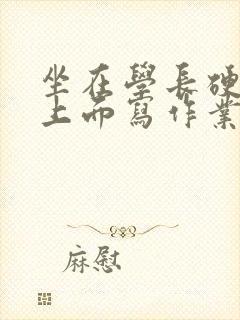 坐在學長硬
上而寫作業
麻慰